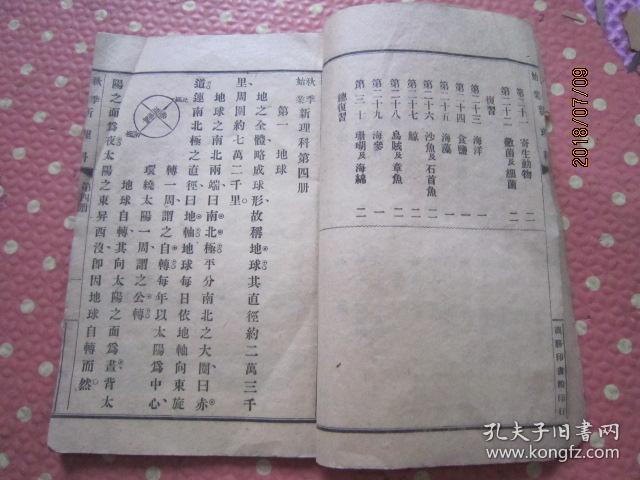 第二十一 寄生動物 二
第二十二 黴菌及細菌 二
復習
第二十三 海洋 一
第二十四 食鹽 一
第二十五 海藻 一
第二十六 沙魚及石首魚 二
第二十七 鯨 二
第二十八 烏賊及章魚 二
第二十九 海參 一
第三十 珊瑚及海綿 二
總復習
商務印書館印行
秋季始業 新理科第四册
第一 地球
地之全體略成球形故稱地球其直徑約二萬三千
里、周圍約七萬二千里。
地球之南北兩端曰南北極平分南北之大圈曰赤
道連南北極之直徑曰地軸地球每日依地軸向東旋
轉一周謂之自轉每年以太陽爲中心、
環繞太陽一周謂之公轉
地球自轉其向太陽之面爲晝背太
陽之面爲夜太陽之東昇西沒即因地球自轉而然。
秋季新理科 第四册
2018/07/09
孔夫子旧书网
kongfz.com